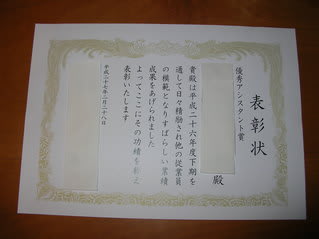 表彰状
優秀アシスタント賞
殿
貴殿は平成二十六年度下期を
通して日々精励され他の従業員
の模範となりすばらしい業績
成果をあげられました
よってここにその功績を称え
表彰いたします
平成二十七年二月二十八日